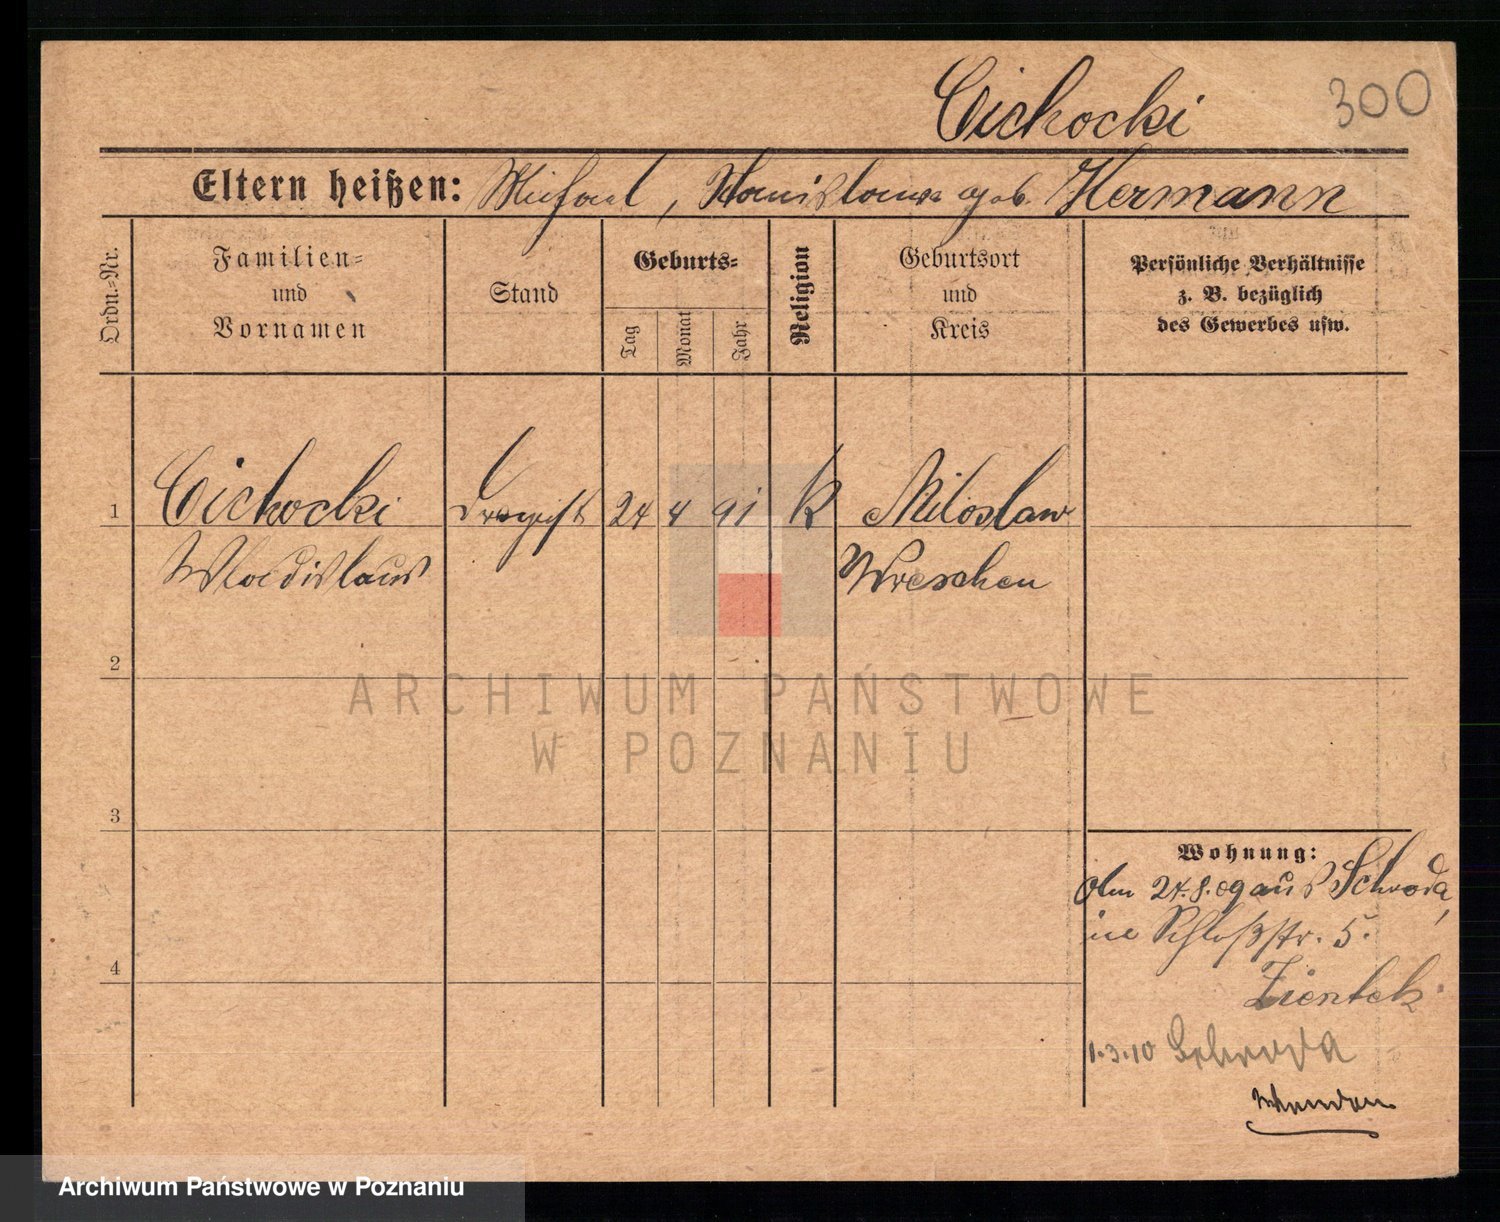 Cichocki 300
Eltern heißen: Michael, Stanislawa geb. Hermann
Ordn.-Nr.
Familien-
und
Vornamen
Stand
Geburts-
Tag
Monat
Jahr
Religion
Geburtsort
und
Kreis
Persönliche Verhältnisse
z. B. bezüglich
des Gewerbes usw.
1 Cichocki Drogist 24 4 91 k Miloslaw
Wladislaus Wreschen
2
3
4
Wohnung:
Am 24.8.09 aus Schroda,
Schloßstr. 5.
Zientek
1.3.10 Schroda
ARCHIWUM PAŃSTWOWE
W POZNANIU
Archiwum Państwowe w Poznaniu